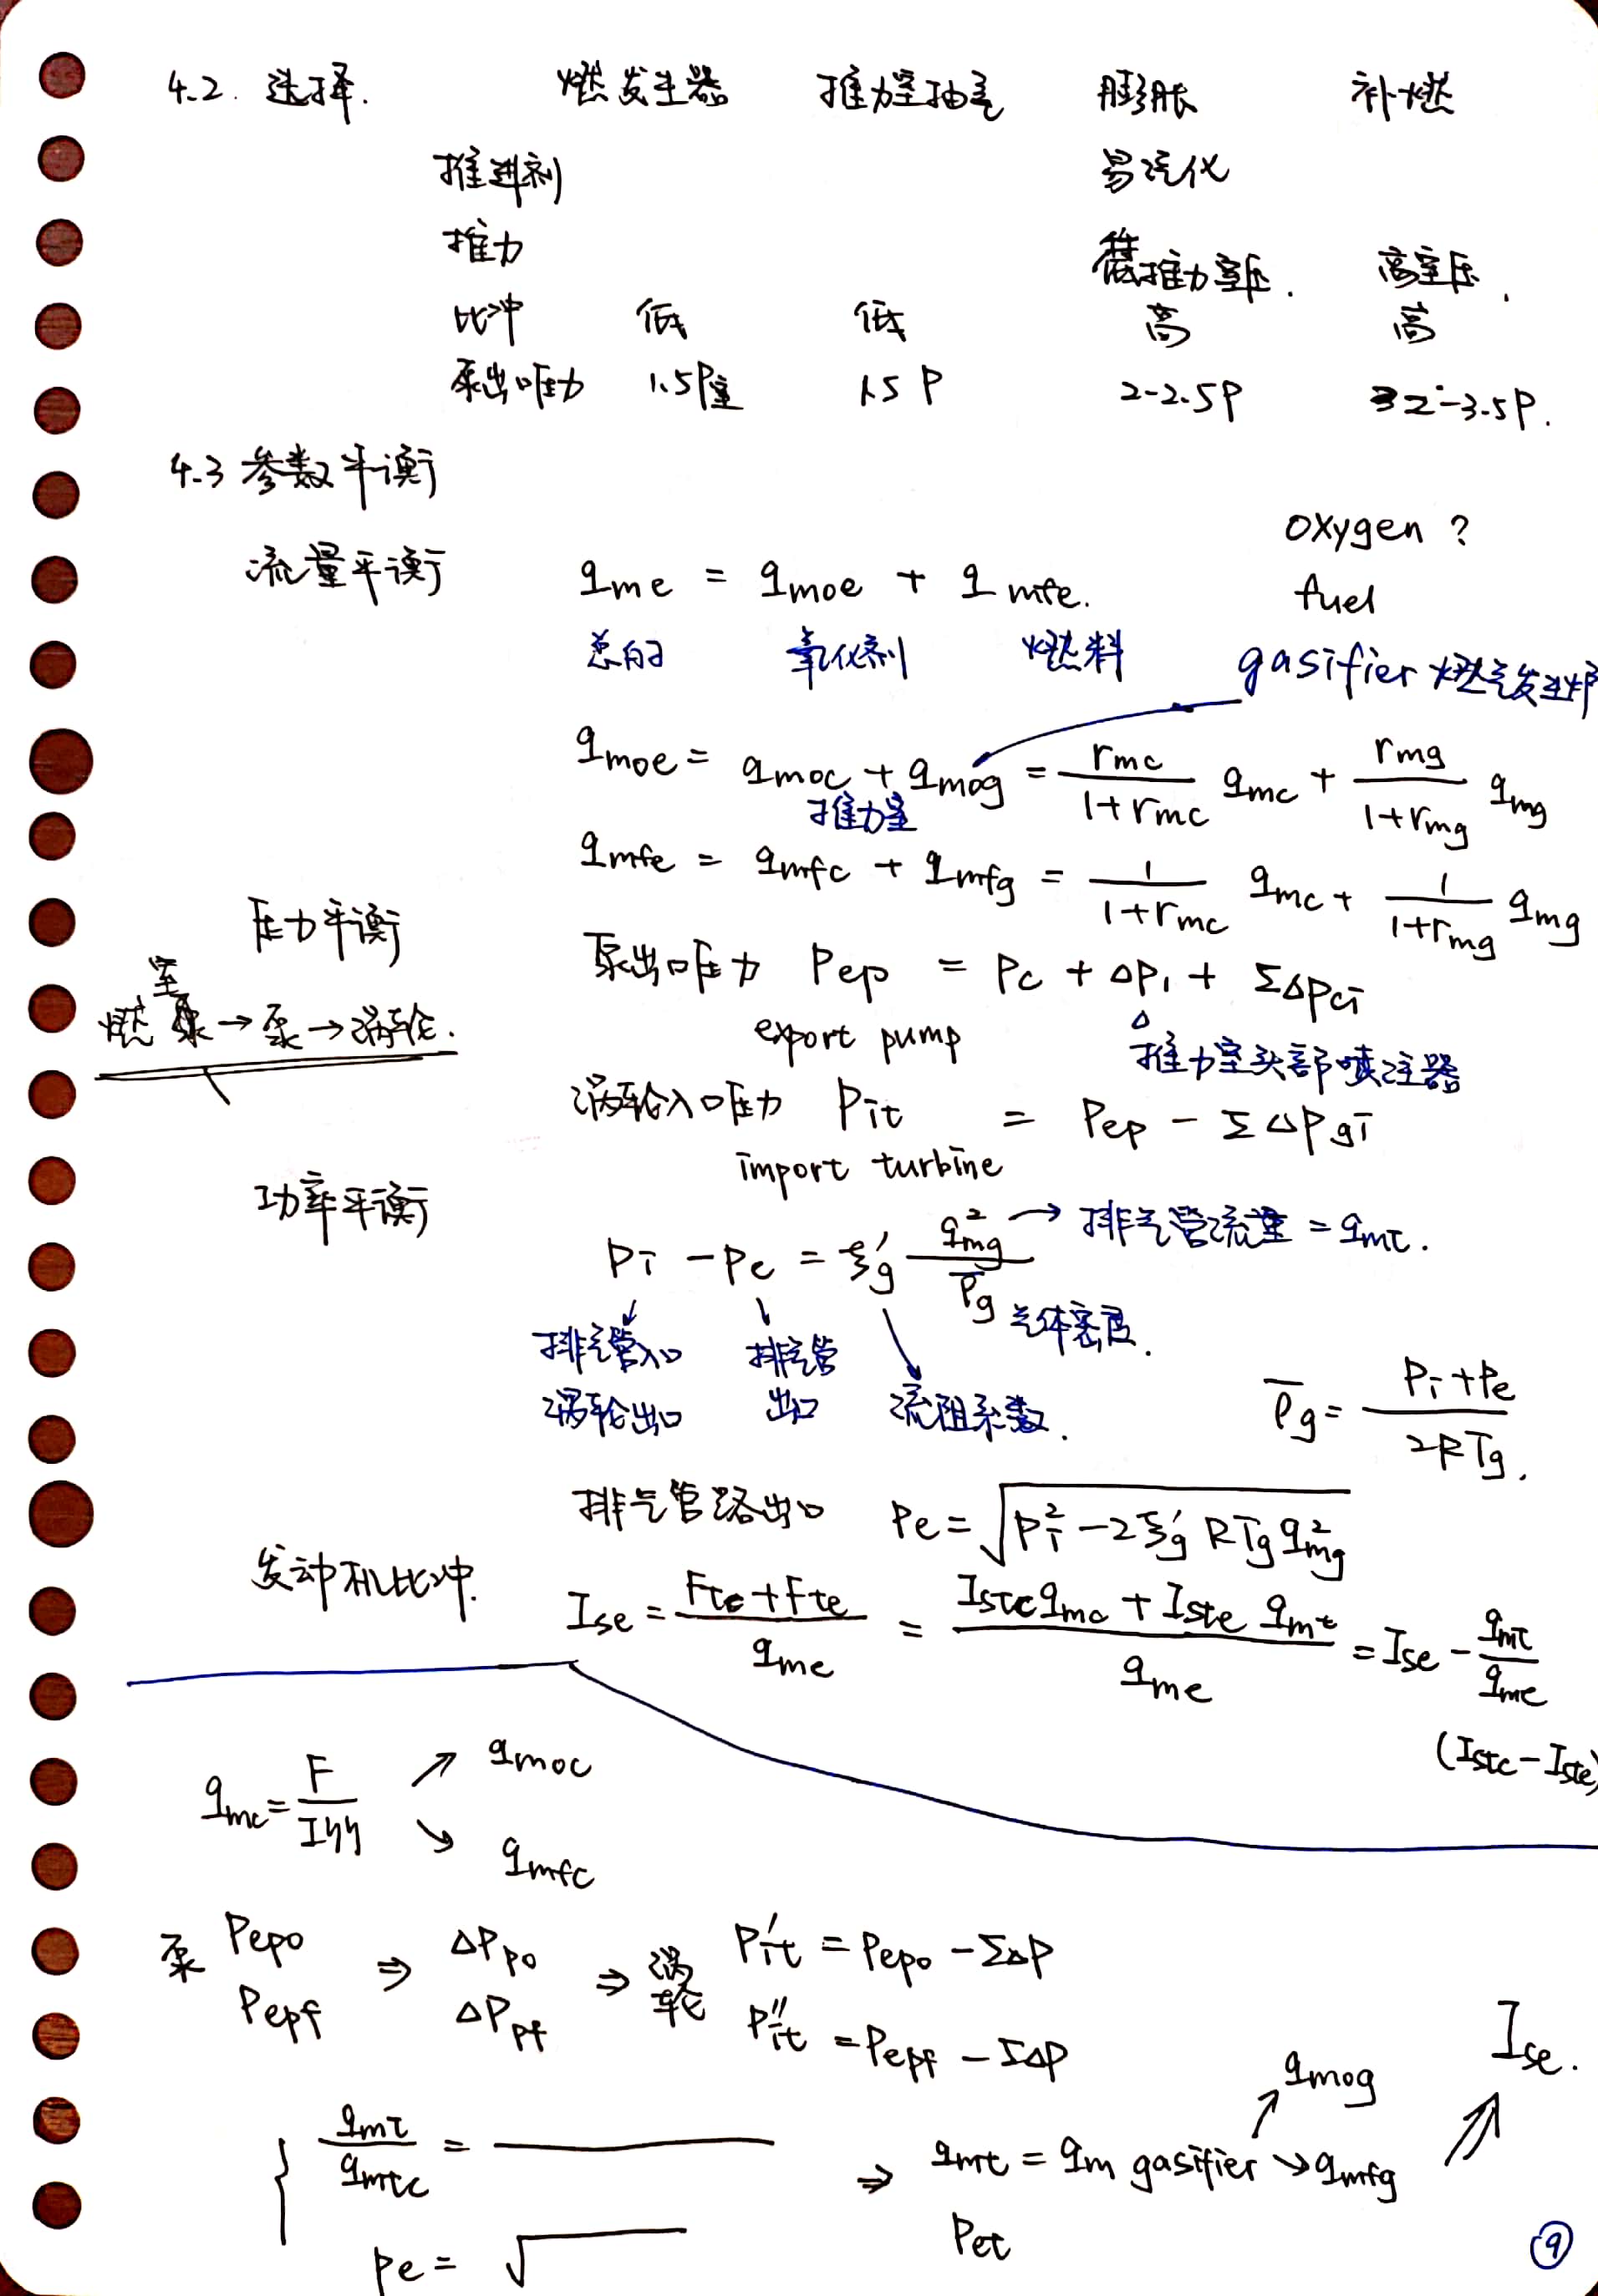 4.2. 选择. 燃发生器 推力室抽气 膨胀 补燃
推进剂 易汽化
推力 低推力室压. 高室压.
比冲 低 低 高 高
泵出口压力 1.5P室 1.5P 2-2.5P 2-3.5P.
4.3 参数平衡
oxygen ?
流量平衡 qme = qmoe + qmfe. fuel
总的 氧化剂 燃料 gasifier 燃气发生炉
qmoe = qmoc + qmog = rmc/(1+rmc) qmc + rmg/(1+rmg) qmg
推力室
qmfe = qmfc + qmfg = 1/(1+rmc) qmc + 1/(1+rmg) qmg
压力平衡
泵出口压力 Pep = Pc + ΔP1 + ΣΔPci
燃室→泵→涡轮. export pump 推力室头部喷注器
涡轮入口压力 Pit = Pep - ΣΔPgi
import turbine
功率平衡
Pi - Pe = ξ'g q²mg/ρ̄g → 排气管流量 = qmt.
气体密度.
排气管入口 排气管
涡轮出口 出口 流阻系数.
ρ̄g = (Pi+Pe)/(2RTg).
排气管路出口 Pe = √(Pi² - 2ξ'g RTg q²mg)
发动机比冲. Ise = (Ftc+Fte)/qme = (Istc qmc + Iste qmt)/qme = Ise - qmt/qme
(Istc - Iste)
qmc = F/Iηη ↗ qmoc
↘ qmfc
泵 Pepo ⇒ ΔPpo ⇒ 涡轮 P'it = Pepo - ΣΔP
Pepf ΔPpf P''it = Pepf - ΣΔP
Ise.
qmog
{ qmt/qmtc = ⇒ qmt = qm gasifier → qmfg
Pe = √ Pet
9